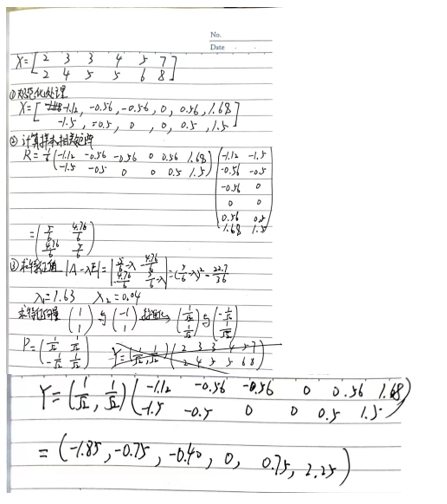 No.
Date
X = [ 2 3 3 4 5 7
2 4 5 5 6 8 ]
①规范化处理
X = [ -1.12, -0.56, -0.56, 0, 0.56, 1.68
-1.5, -0.5, 0, 0, 0.5, 1.5 ]
② 计算样本相关矩阵
R = 1/6 ( -1.12 -0.56 -0.56 0 0.56 1.68 ) ( -1.12 -1.5
-1.5 -0.5 0 0 0.5 1.5
-0.56 -0.5
-0.56 0
0 0
0.56 0.5
1.68 1.5 )
= ( 5/6 4.76/6
4.76/6 5/6 )
③求特征值 |A-λE| = | 5/6-λ 4.76/6
4.76/6 5/6-λ | = (5/6-λ)² - 22.7/36
λ₁=1.63 λ₂=0.04
求特征向量 ( 1 1 ) 与 ( -1 1 ) ( 1/√2 1/√2 ) 与 ( -1/√2 1/√2 )
P = ( 1/√2 1/√2
-1/√2 1/√2 ) Y = ( 1/√2, 1/√2 ) ( 2 3 3 4 5 7
2 4 5 5 6 8 )
Y = ( 1/√2, 1/√2 ) ( -1.12 -0.56 -0.56 0 0.56 1.68
-1.5 -0.5 0 0 0.5 1.5 )
= ( -1.85, -0.75, -0.40, 0, 0.75, 2.25 )